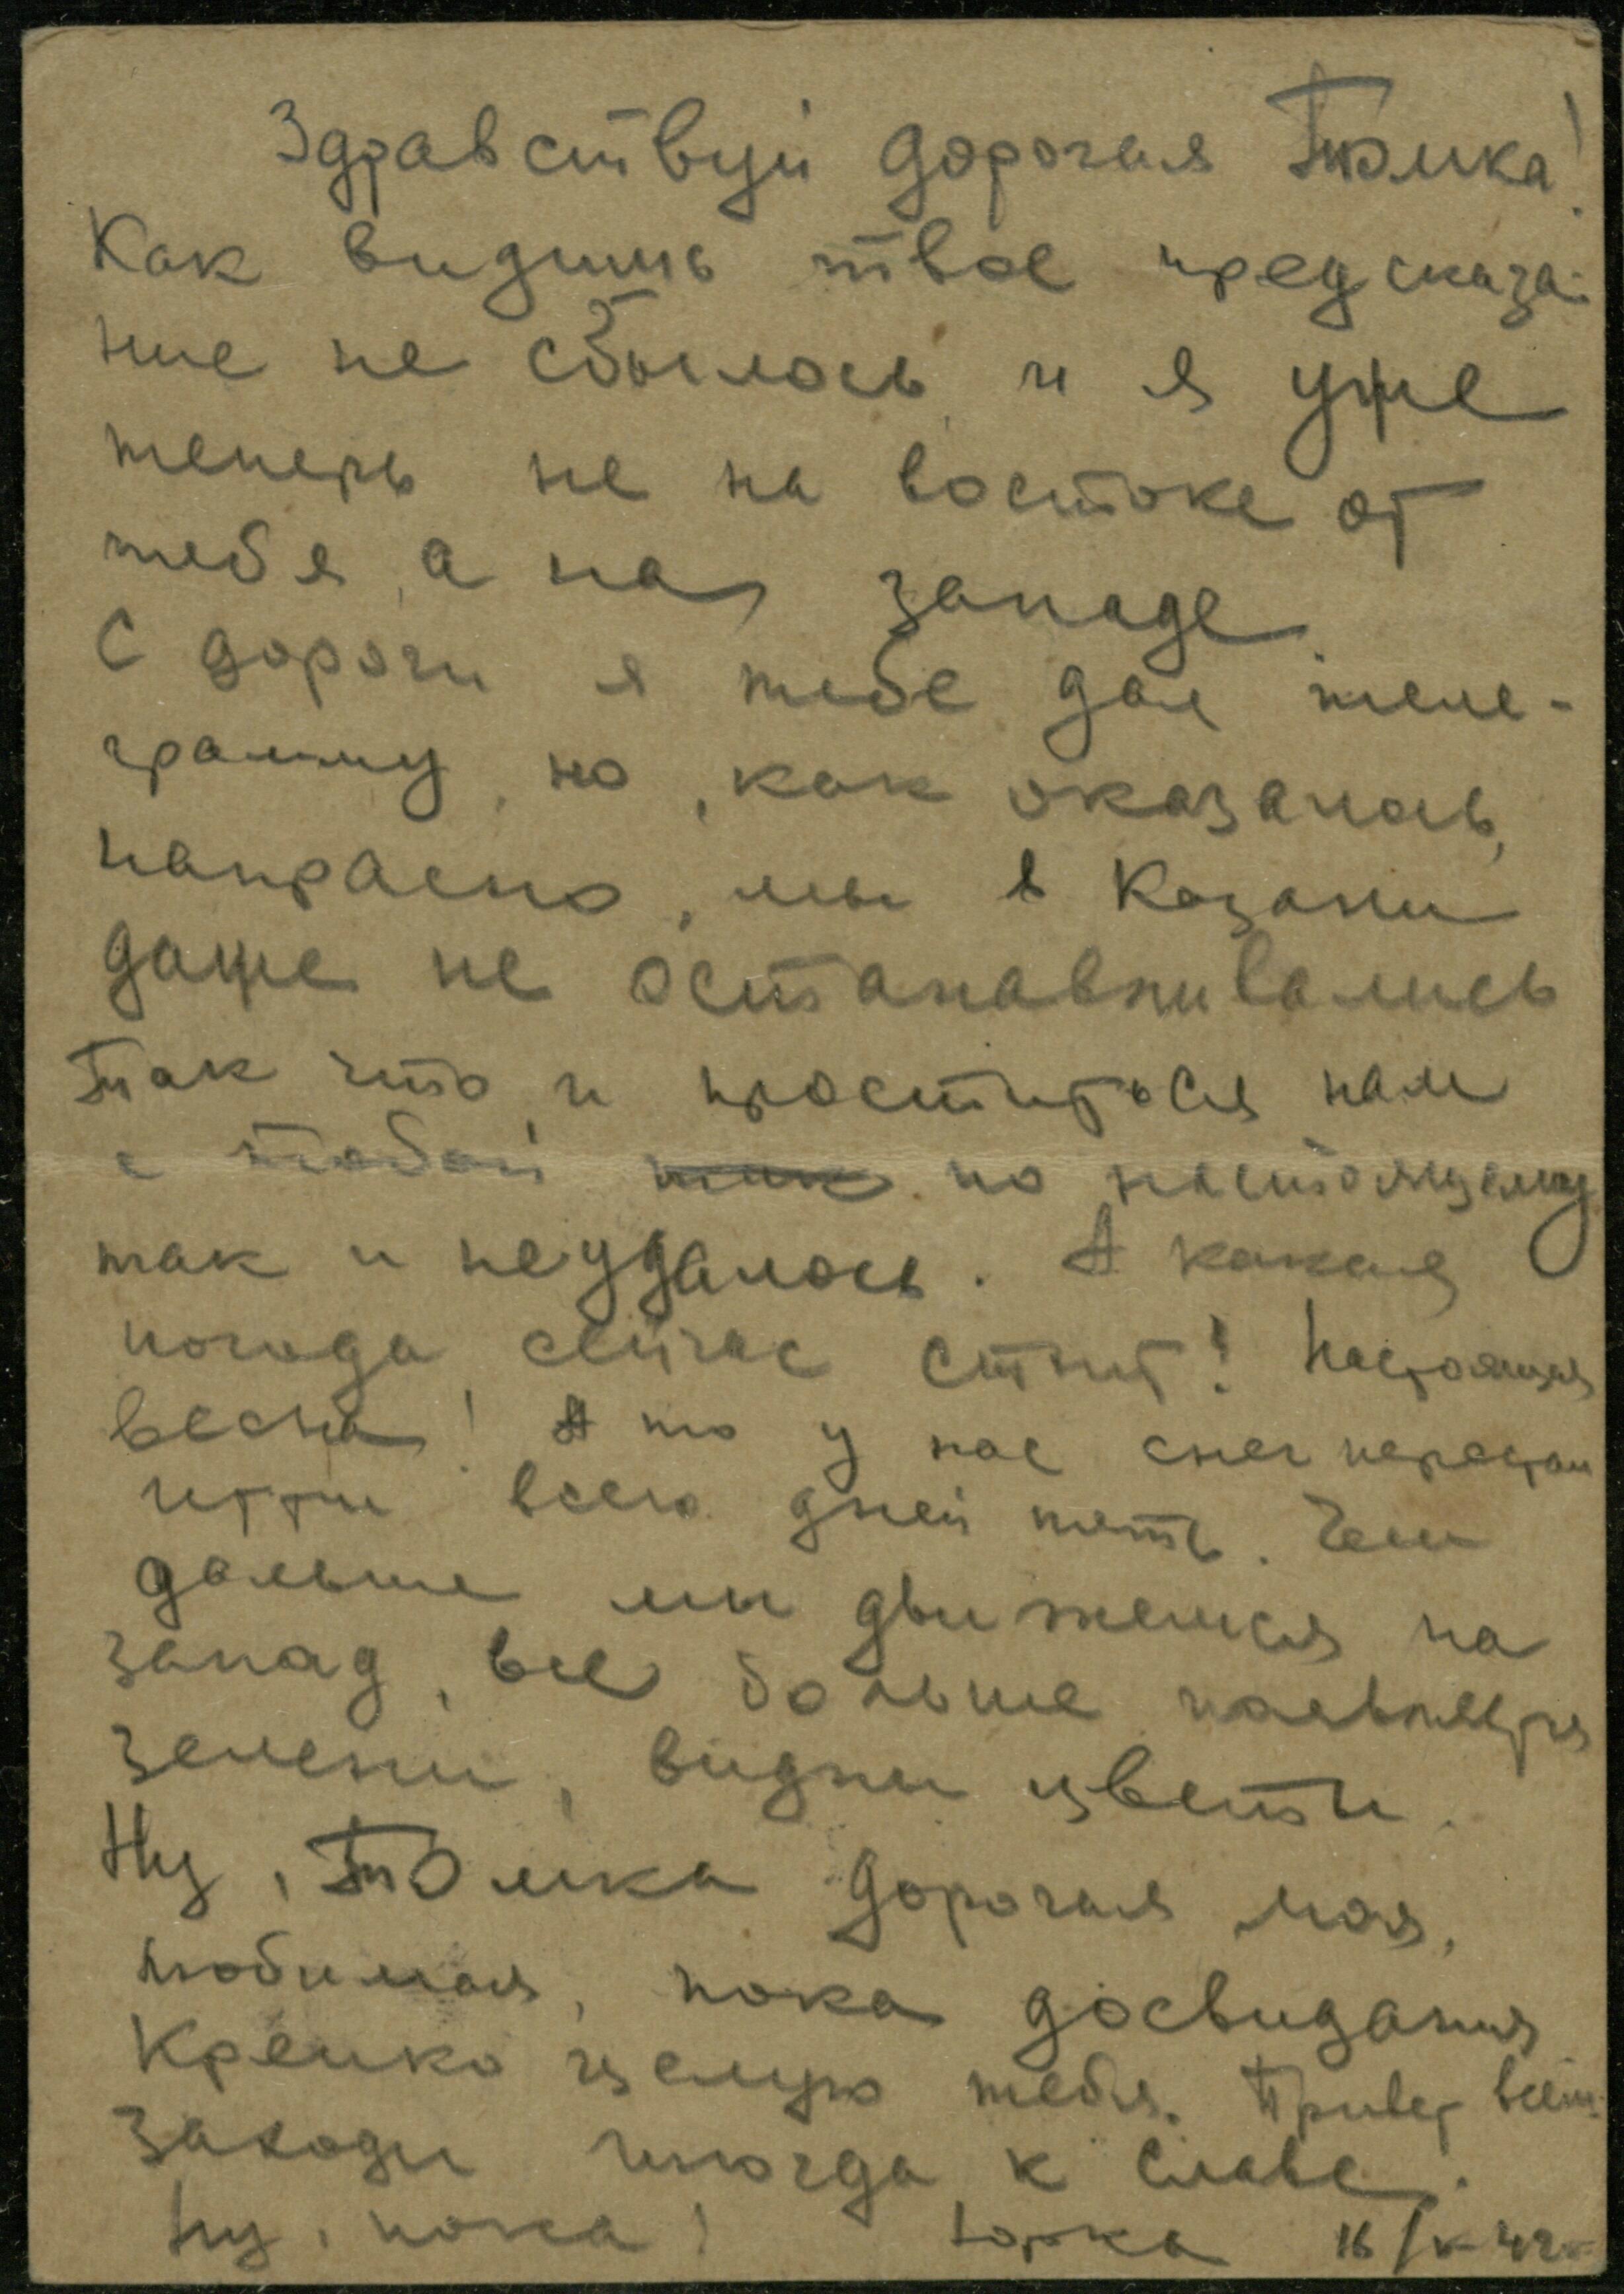 Здравствуй дорогая Томка!
Как видишь твое предсказа-
ние не сбылось, и я уже
теперь не на востоке от
тебя, а на западе.
С дороги я тебе дал теле-
грамму, но, как оказалось,
напрасно, мы в Казани
даже не останавливались
Так что и проститься нам
с тобой так по настоящему
так и неудалось. А какая
погода сейчас стоит! Настоящая
весна! А то у нас снег перестал
итти всего дней пять. Чем
дальше мы движемся на
запад, все больше появляется
зелени, видны цветы.
Ну, Томка дорогая моя,
любимая, пока досвидания
Крепко целую тебя. Привет всем.
Заходи иногда к Славе.
Ну, пока! Юрка 16/V-42г.